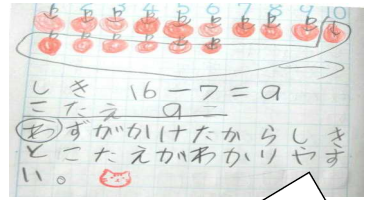 7 8 9 10
しき 16-7=9
こたえ 9
わ ずがかけたからしき
とこたえがわかりやす
い。